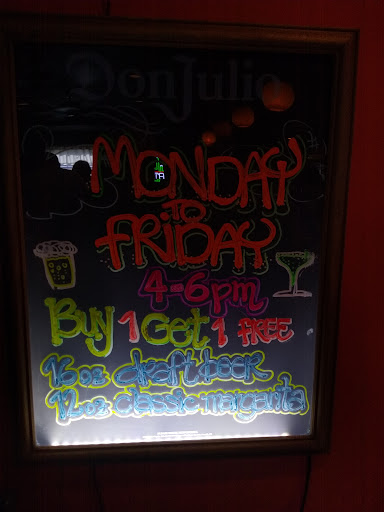 Don Julio
MONDAY
TO
FRiDAY
4-6pm
Buy 1 Get 1 FREE
16oz draft beer
12oz classic margarita